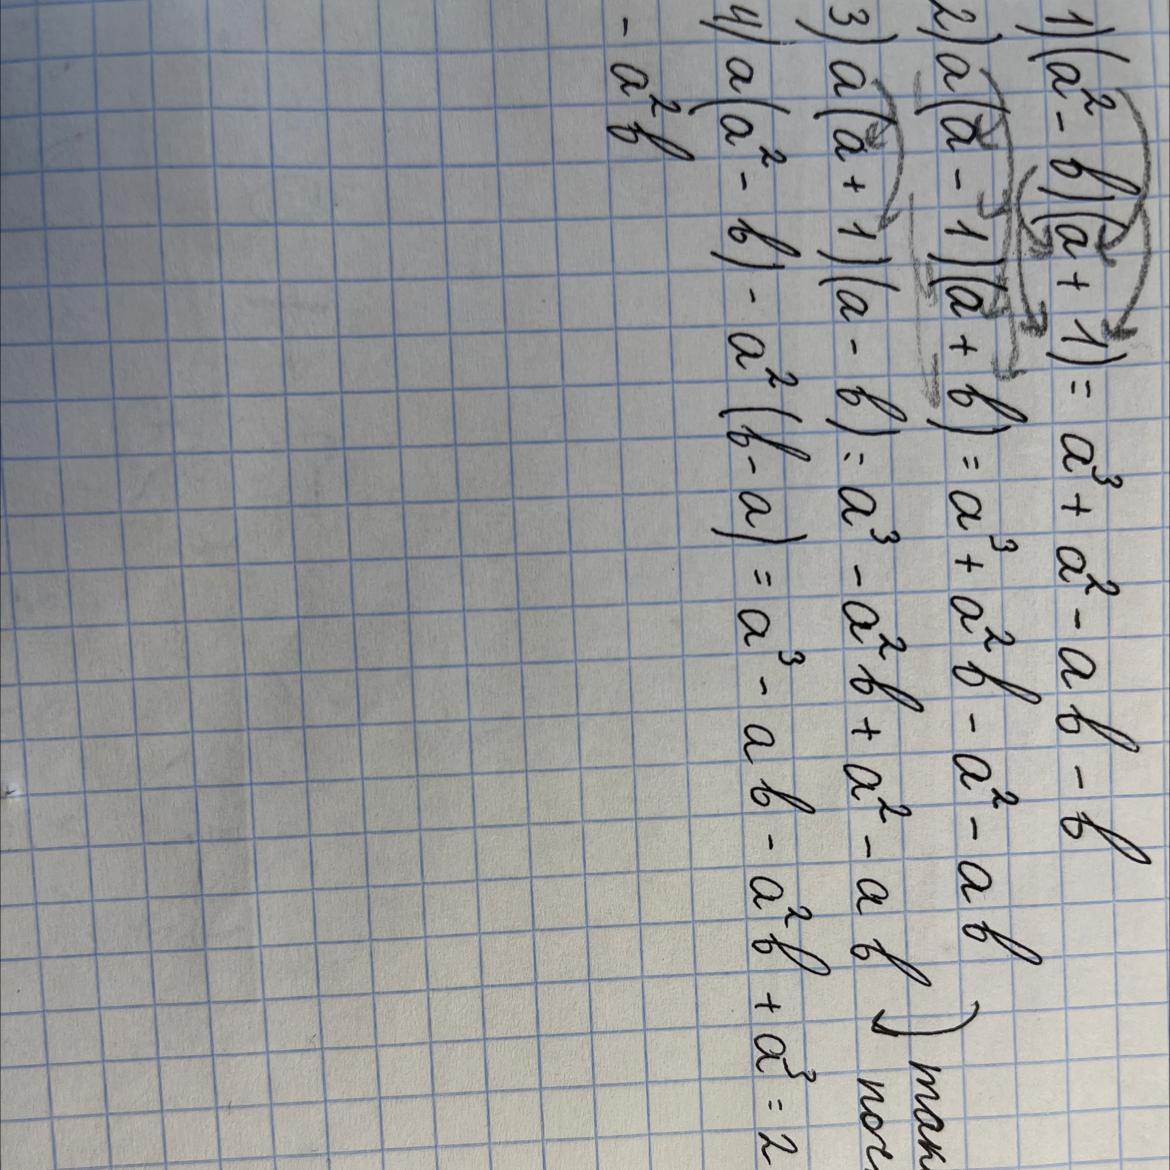 1) (a² - b)(a + 1) = a³ + a² - ab - b
2) a(a - 1)(a + b) = a³ + a²b - a² - ab
3) a(a + 1)(a - b) = a³ - a²b + a² - ab
4) a(a² - b) - a²(b - a) = a³ - ab - a²b + a³ = 2
- a²b